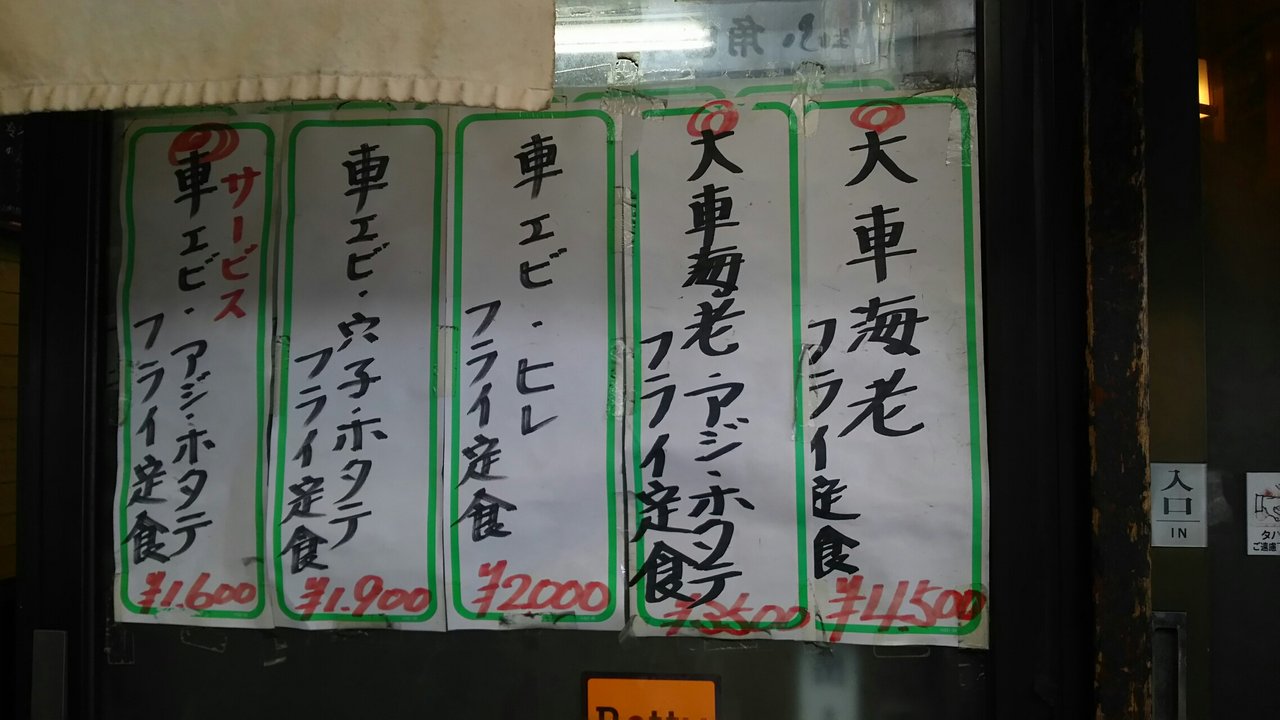 大車海老
フライ定食
¥4.500
大車海老・アジ・ホタテ
フライ定食
¥3500
車エビ・ヒレ
フライ定食
¥2000
車エビ・穴子・ホタテ
フライ定食
¥1.900
サービス
車エビ・アジ・ホタテ
フライ定食
¥1.600
入口
IN